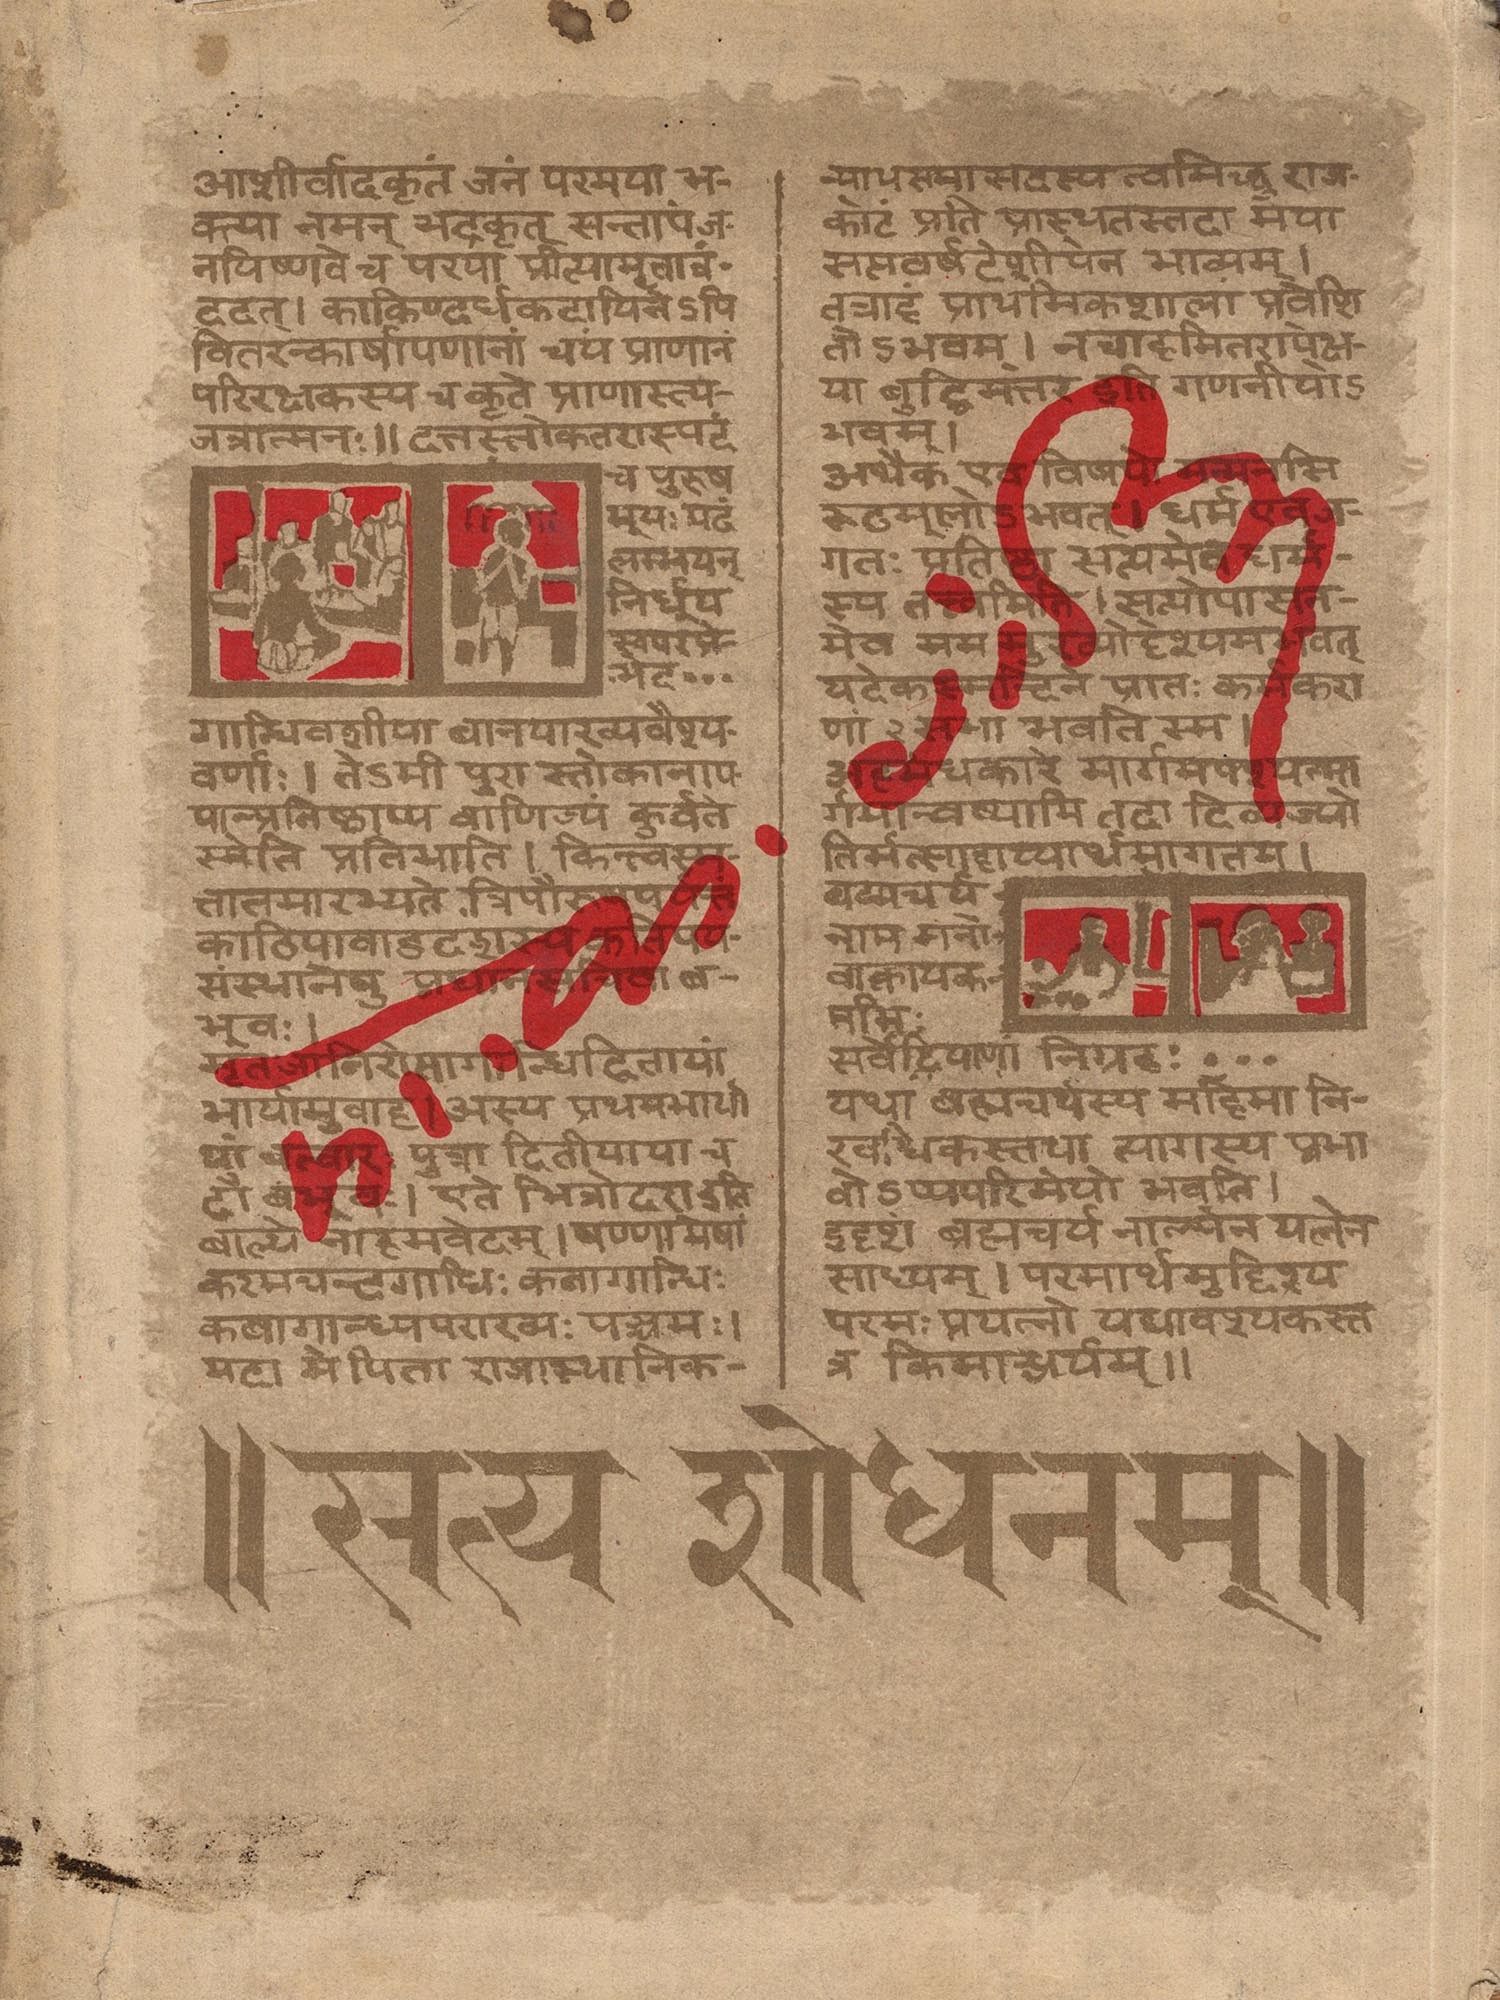 आशीर्वादकृतं जनं परमया भ-
क्त्या नमन् भद्रकृत् सन्तापंज-
नयिष्णवे च परया प्रीत्यामृतावं-
ददत्। काकिण्यर्धकदायिनेऽपि
वितरन्कार्षापणानां चयं प्राणानं
परिरक्षकस्य च कृते प्राणास्त्य-
जन्नात्मनः॥ दत्तस्तोकतरास्पदं
च पुरुष
मूयः पदं
लम्भयन्
निर्धूय
स्वपरप्रे-
भेद...
गान्धिवंशीया बानयाख्यवैश्य-
वर्णाः। तेऽमी पुरा स्तोकानाप-
पान्प्रतिष्ठाप्य वाणिज्यं कुर्वते
स्मेति प्रतिभाति। किन्त्वस्म-
त्तातमारभ्यते त्रिपौरुषपर्यन्तं
काठियावाडदेशस्य कतिपय-
संस्थानेषु प्रधानसचिवा ब-
भूवः।
मृतजानिरोत्तागान्धिद्वितायां
भार्यामुवाह। अस्य प्रथमभार्या
यां चत्वारः पुत्रा द्वितीयाया च
द्वौ बभूवुः। एते भिन्नोदरा इति
बाल्ये नाहमवेदम्। षण्णामेषां
करमचन्द्रगांधिः कबागान्धिः
कबागान्ध्यपराख्यः पञ्चमः।
यदा मे पिता राजास्थानिक-
न्यायसभासदस्य त्वमिच्छु राज-
कोटं प्रति प्रास्थितस्तदा मया
सप्तवर्षदेशीयेन भाव्यम्।
तत्राहं प्राथमिकशालां प्रवेशि
तोऽभवम्। नचाहमितरापेक्ष-
या बुद्धिमत्तर इति गणनीयोऽ
भवम्।
अथैक एव विषयो मन्मनसि
रूढमूलोऽभवत्। धर्म एव ज-
गतः प्रतिष्ठा सत्यमेव धर्म-
स्य तत्त्वमिति। सत्योपासन-
मेव मम मुख्योद्देश्यमभवत्
यदेकस्मिन्दिने प्रातः कर्मकरा
णां २ सभा भवति स्म।
अहमंधकारे मार्गमपश्यत्मा
र्गमन्विष्यामि तदा दिव्यज्यो
तिर्मत्साहाय्यार्थमागतम्।
ब्रह्मचर्यं
नाम मनो-
वाक्कायक-
र्मभिः
सर्वेंद्रियाणां निग्रहः...
यथा ब्रह्मचर्यस्य महिमा नि-
रवधिकस्तथा त्यागस्य प्रभा
वोऽप्यपरिमेयो भवति।
इदृशं ब्रह्मचर्यं नाल्पेन यत्नेन
साध्यम्। परमार्थमुद्दिश्य
परमः प्रयत्नो यथावश्यकस्त
त्र किमाश्चर्यम्॥
॥ सत्य शोधनम् ॥